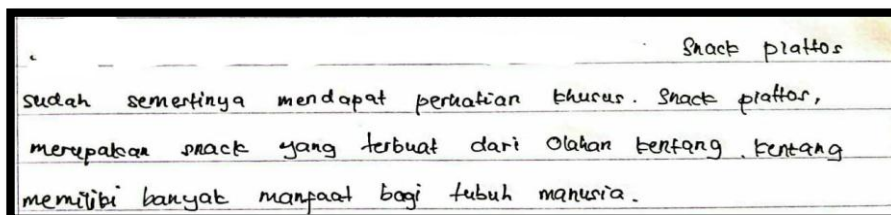 Snack piattos
sudah semestinya mendapat perhatian khusus. Snack piattos,
merupakan snack yang terbuat dari Olahan kentang. kentang
memiliki banyak manfaat bagi tubuh manusia.